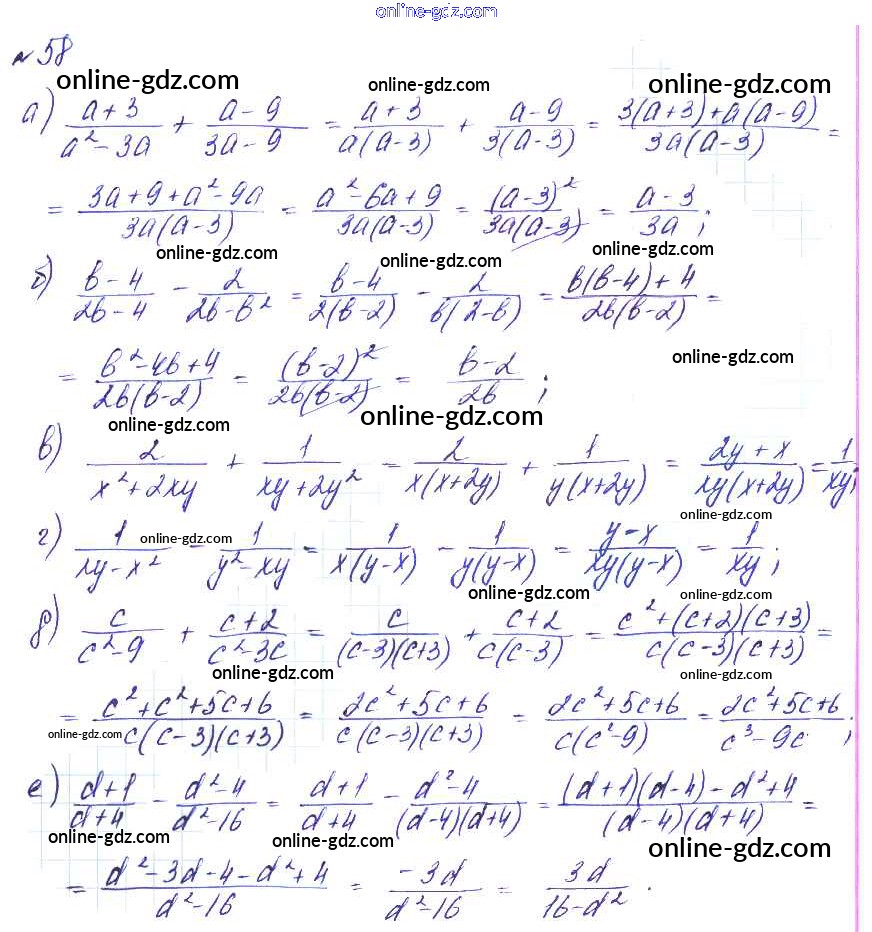 online-gdz.com
№ 58
online-gdz.com online-gdz.com online-gdz.com
а) (a+3)/(a²-3a) + (a-9)/(3a-9) = (a+3)/(a(a-3)) + (a-9)/(3(a-3)) = (3(a+3)+a(a-9))/(3a(a-3)) =
= (3a+9+a²-9a)/(3a(a-3)) = (a²-6a+9)/(3a(a-3)) = (a-3)²/(3a(a-3)) = (a-3)/(3a);
online-gdz.com online-gdz.com online-gdz.com
б) (b-4)/(2b-4) - 2/(2b-b²) = (b-4)/(2(b-2)) - 2/(b(2-b)) = (b(b-4)+4)/(2b(b-2)) =
online-gdz.com
= (b²-4b+4)/(2b(b-2)) = (b-2)²/(2b(b-2)) = (b-2)/(2b);
online-gdz.com online-gdz.com
в) 2/(x²+2xy) + 1/(xy+2y²) = 2/(x(x+2y)) + 1/(y(x+2y)) = (2y+x)/(xy(x+2y)) = 1/(xy);
online-gdz.com
online-gdz.com
г) 1/(xy-x²) - 1/(y²-xy) = 1/(x(y-x)) - 1/(y(y-x)) = (y-x)/(xy(y-x)) = 1/(xy);
online-gdz.com online-gdz.com
д) c/(c²-9) + (c+2)/(c²-3c) = c/((c-3)(c+3)) + (c+2)/(c(c-3)) = (c²+(c+2)(c+3))/(c(c-3)(c+3)) =
online-gdz.com online-gdz.com
= (c²+c²+5c+6)/(c(c-3)(c+3)) = (2c²+5c+6)/(c(c-3)(c+3)) = (2c²+5c+6)/(c(c²-9)) = (2c²+5c+6)/(c³-9c);
online-gdz.com
е) (d+1)/(d+4) - (d²-4)/(d²-16) = (d+1)/(d+4) - (d²-4)/((d-4)(d+4)) = ((d+1)(d-4)-d²+4)/((d-4)(d+4)) =
online-gdz.com online-gdz.com online-gdz.com
= (d²-3d-4-d²+4)/(d²-16) = (-3d)/(d²-16) = 3d/(16-d²).